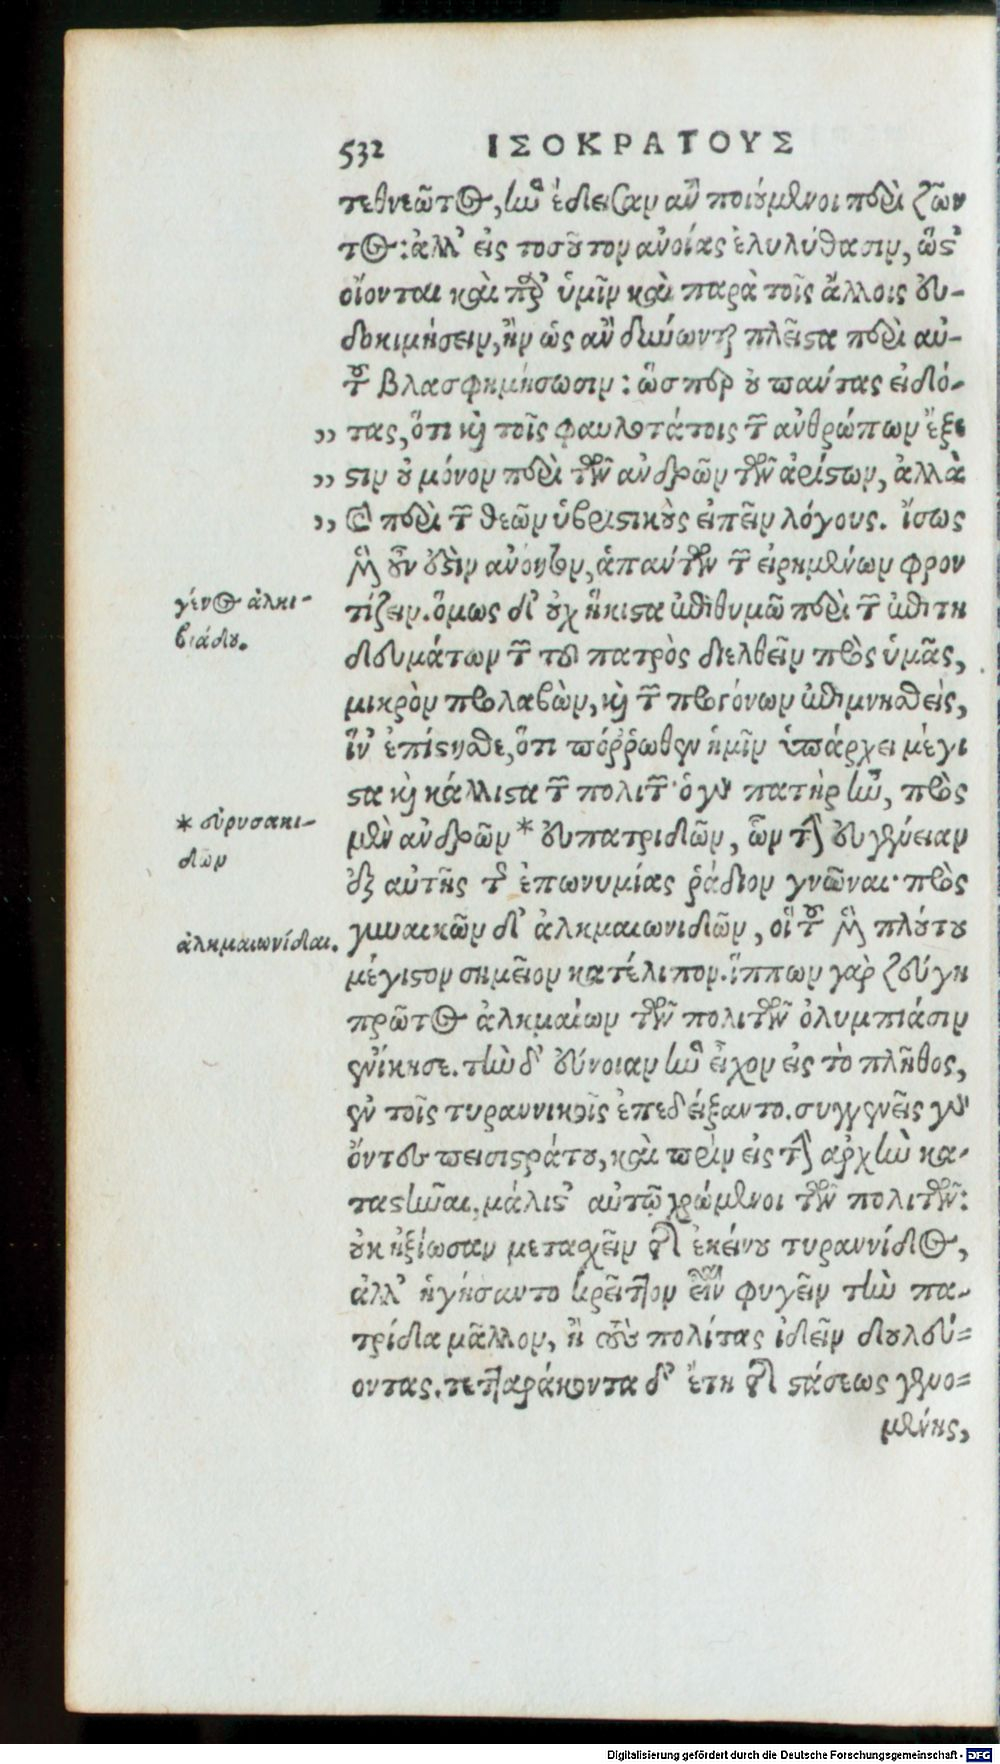 532 ΙΣΟΚΡΑΤΟΥΣ
τεθνεῶτος, ἣν ἔδεισαν ἂν ποιούμενοι περὶ ζῶν
τος: ἀλλ' εἰς τοσοῦτον ἀνοίας ἐληλύθασιν, ὥστ'
οἴονται καὶ παρ' ὑμῖν καὶ παρὰ τοῖς ἄλλοις εὐ-
δοκιμήσειν, ἢν ὡς ἂν δύνωνται πλεῖστα περὶ αὐ-
τοῦ βλασφημήσωσιν: ὥσπερ οὐ πάντας εἰδό-
„ τας, ὅτι καὶ τοῖς φαυλοτάτοις τῶν ἀνθρώπων ἔξε
„ στιν οὐ μόνον περὶ τῶν ἀνδρῶν τῶν ἀρίστων, ἀλλὰ
„ καὶ περὶ τῶν θεῶν ὑβριστικοὺς εἰπεῖν λόγους. ἴσως
μὲν οὖν οὐδὲν ἀνόητον, ἁπάντων τῶν εἰρημένων φρον
γένος ἀλκι-
βιάδου.
τίζειν. ὅμως δ' οὐχ ἥκιστα ἐπιθυμῶ περὶ τῶν ἐπιτη
δευμάτων τῶν τοῦ πατρὸς διελθεῖν πρὸς ὑμᾶς,
μικρὸν προλαβὼν, καὶ τῶν προγόνων ἐπιμνησθεὶς,
ἵν' ἐπίστησθε, ὅτι πόῤῥωθεν ἡμῖν ὑπάρχει μέγι
στα καὶ κάλλιστα τῶν πολιτῶν· ὁ γὰρ πατὴρ ἦν, πρὸς
* εὐρυσακι-
δῶν
μὲν ἀνδρῶν * εὐπατριδῶν, ὧν τὴν εὐγένειαν
ἐξ αὐτῆς τῆς ἐπωνυμίας ῥᾴδιον γνῶναι· πρὸς
ἀλκμαιωνίδαι.
γυναικῶν δ' ἀλκμαιωνιδῶν, οἳ τοῦ μὲν πλούτου
μέγιστον σημεῖον κατέλιπον. ἵππων γὰρ ζεύγη
πρῶτος ἀλκμαίων τῶν πολιτῶν ὀλυμπιάσιν
ἐνίκησε. τὴν δ' εὔνοιαν ἣν εἶχον εἰς τὸ πλῆθος,
ἐν τοῖς τυραννικοῖς ἐπεδείξαντο. συγγενεῖς γὰρ
ὄντες πεισιστράτου, καὶ πρὶν εἰς τὴν ἀρχὴν κα-
ταστῆναι, μάλιστ' αὐτῷ χρώμενοι τῶν πολιτῶν:
οὐκ ἠξίωσαν μετασχεῖν τῆς ἐκείνου τυραννίδος,
ἀλλ' ἡγήσαντο κρεῖττον εἶναι φυγεῖν τὴν πα-
τρίδα μᾶλλον, ἢ τοὺς πολίτας ἰδεῖν δουλεύ-
οντας. τετταράκοντα δ' ἔτη τῆς στάσεως γενο-
μένης,
Digitalisierung gefördert durch die Deutsche Forschungsgemeinschaft - DFG